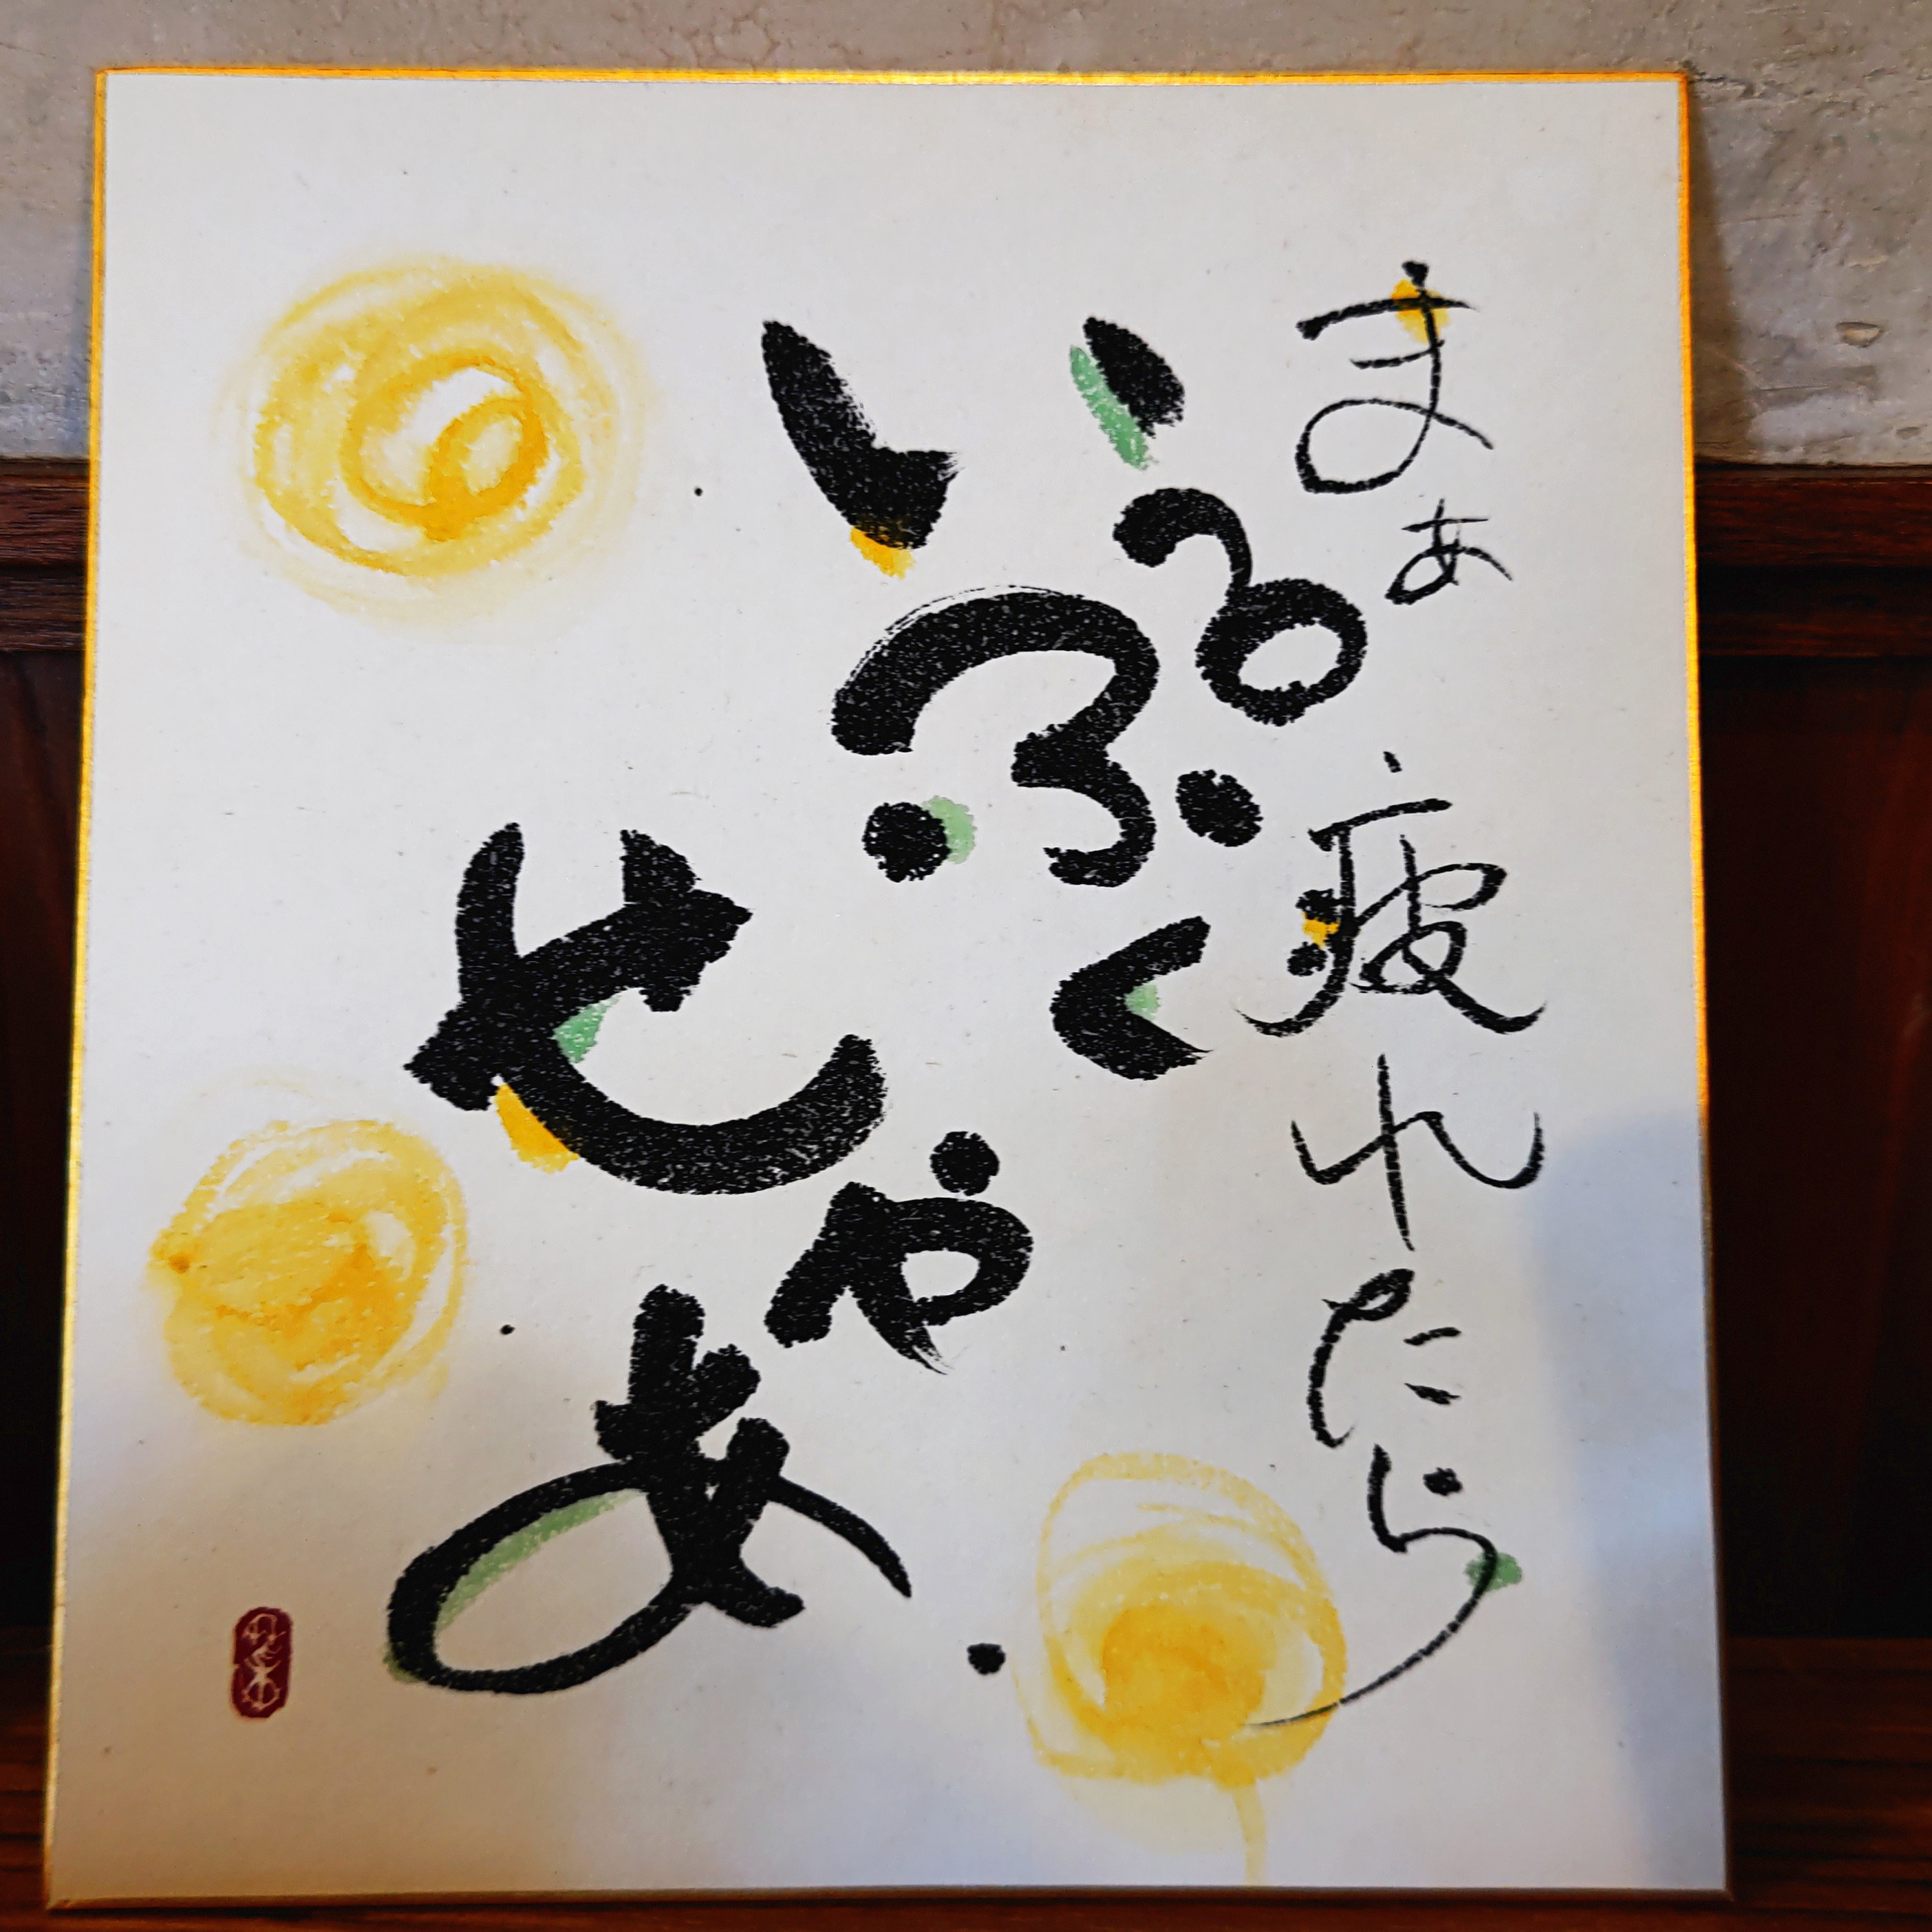 まぁ疲れたら
いっぷく
せやあ